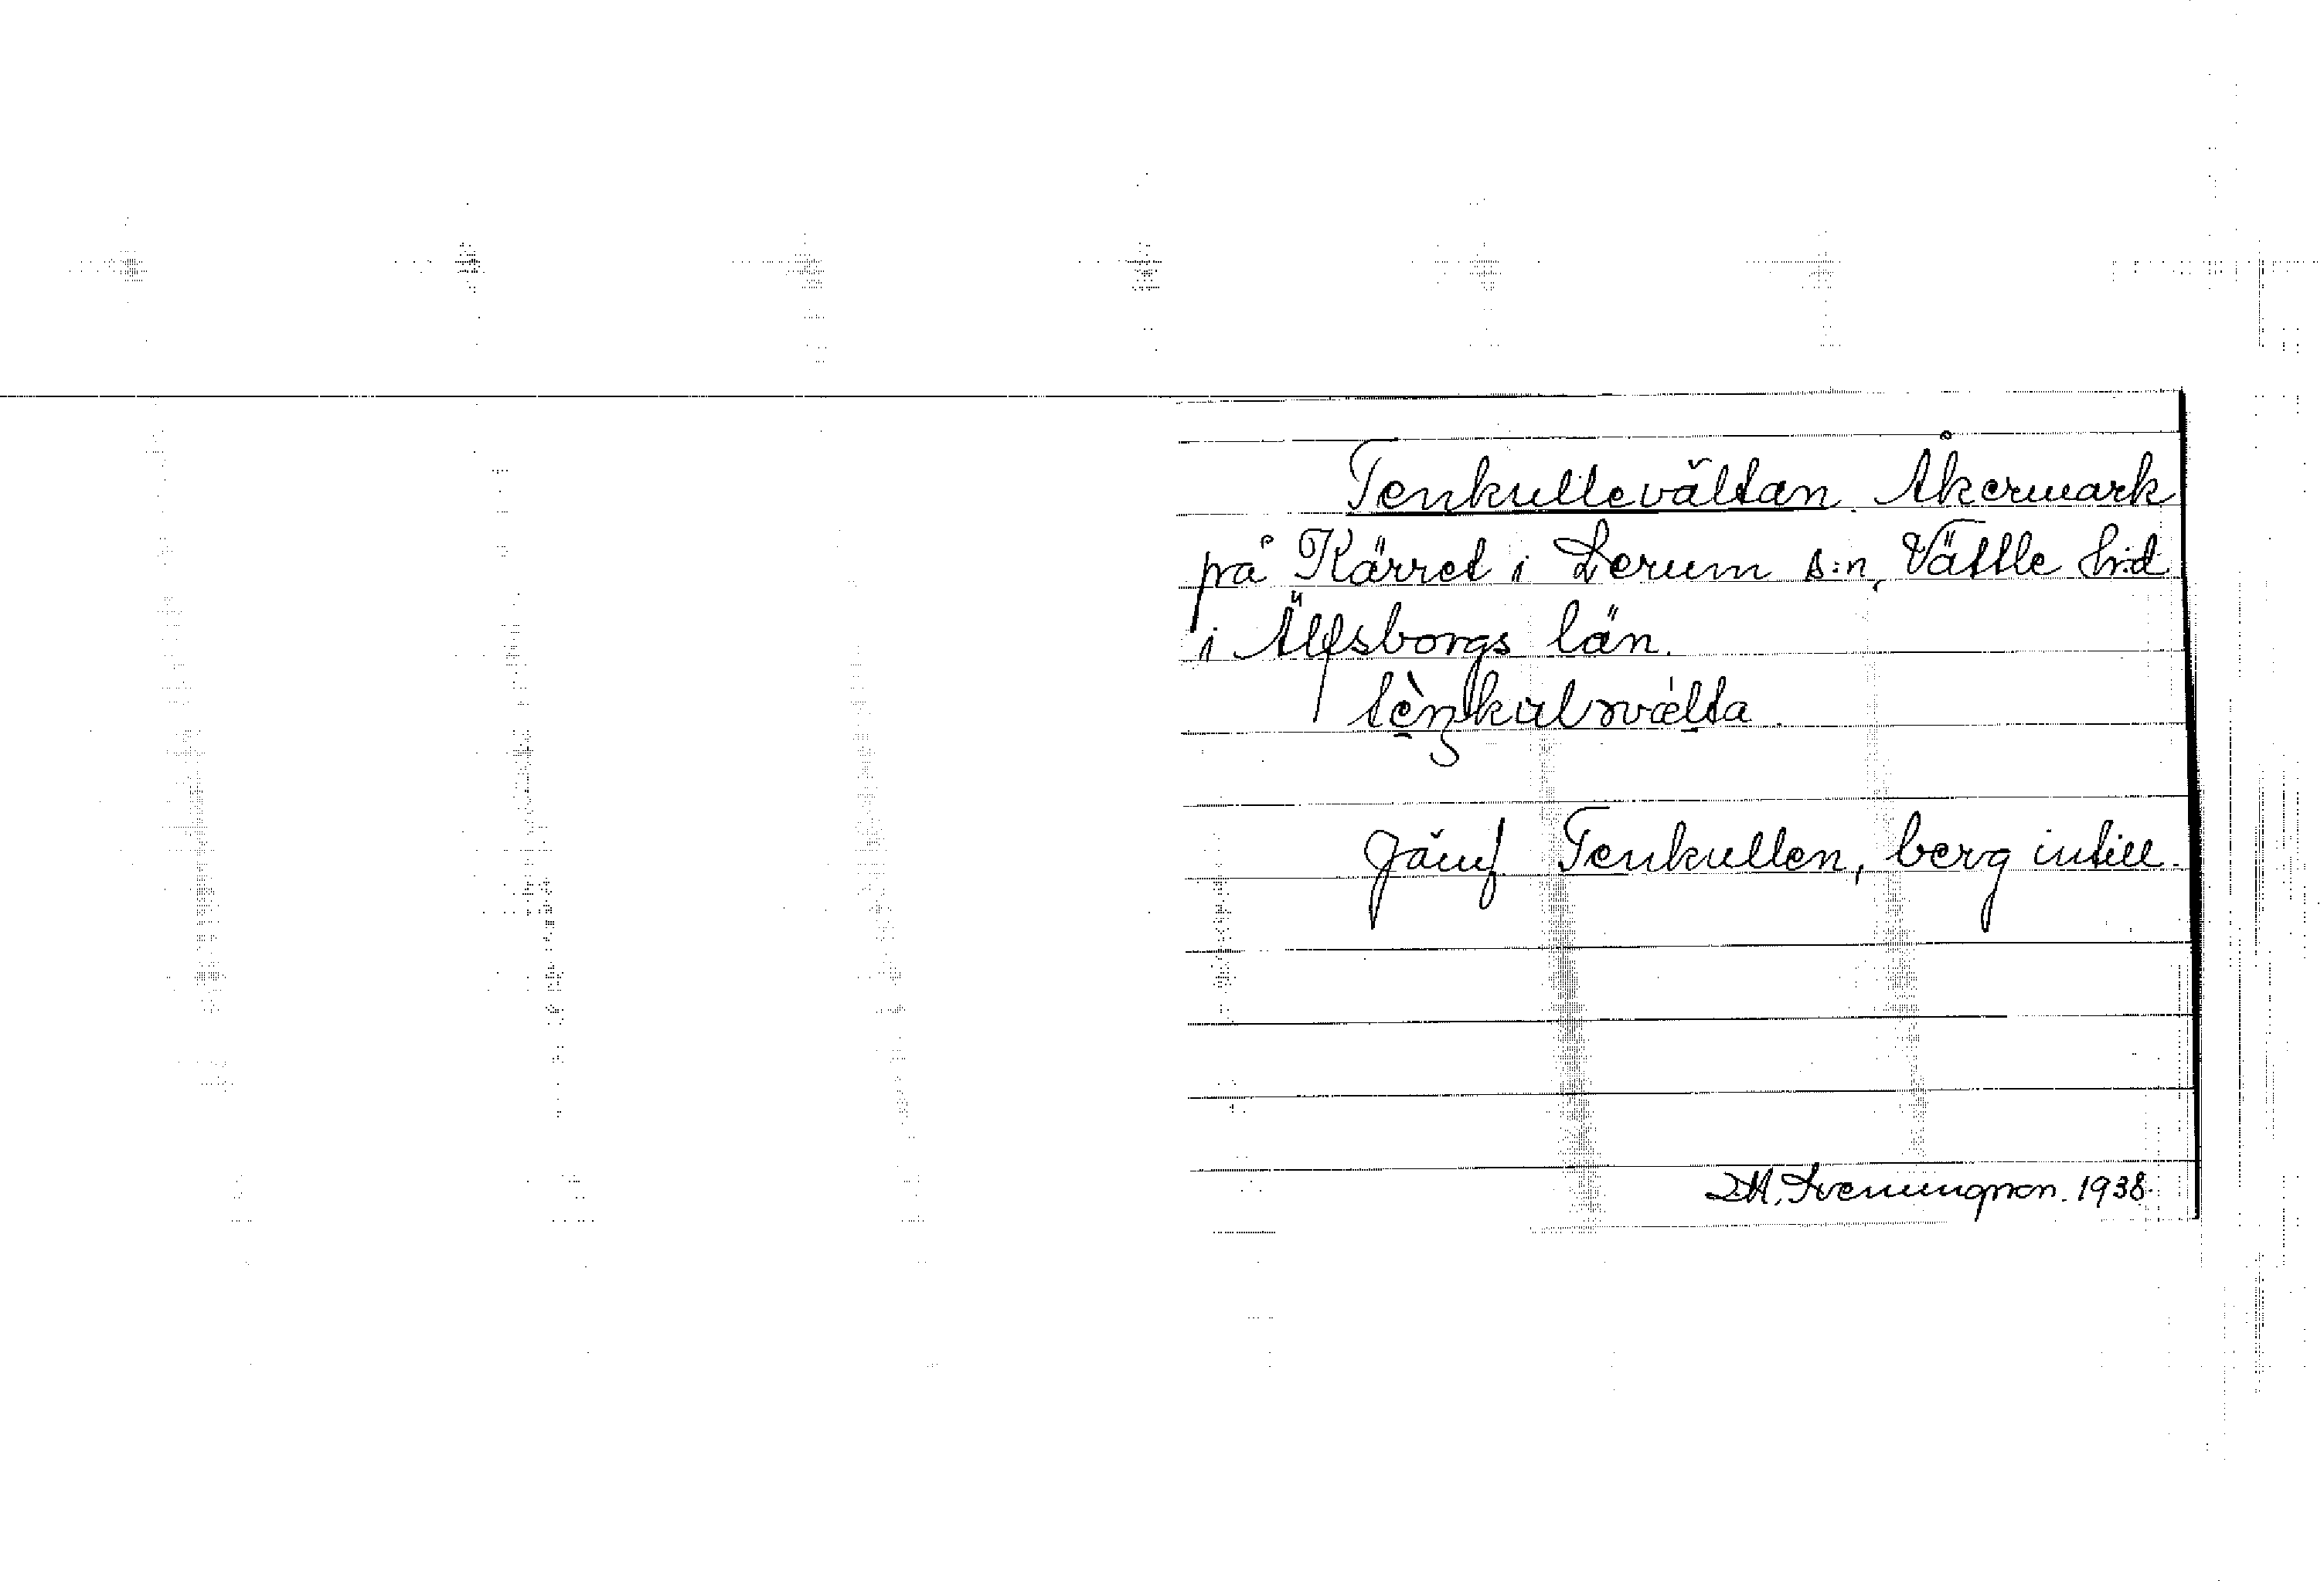 Tenkullevältan. Åkermark
på Kärret i Lerum s:n, Vättle h:d
i Älfsborgs län.
Jämf Tenkullen, berg intill.
1938.